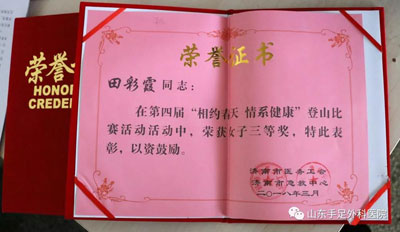 荣誉
HONO
CREDE
荣誉证书
田彩霞 同志：
在第四届“相约春天 情系健康”登山比
赛活动活动中，荣获女子三等奖，特此表
彰，以资鼓励。
济南市医务工会
济南市急救中心
二〇一八年三月
山东手足外科医院